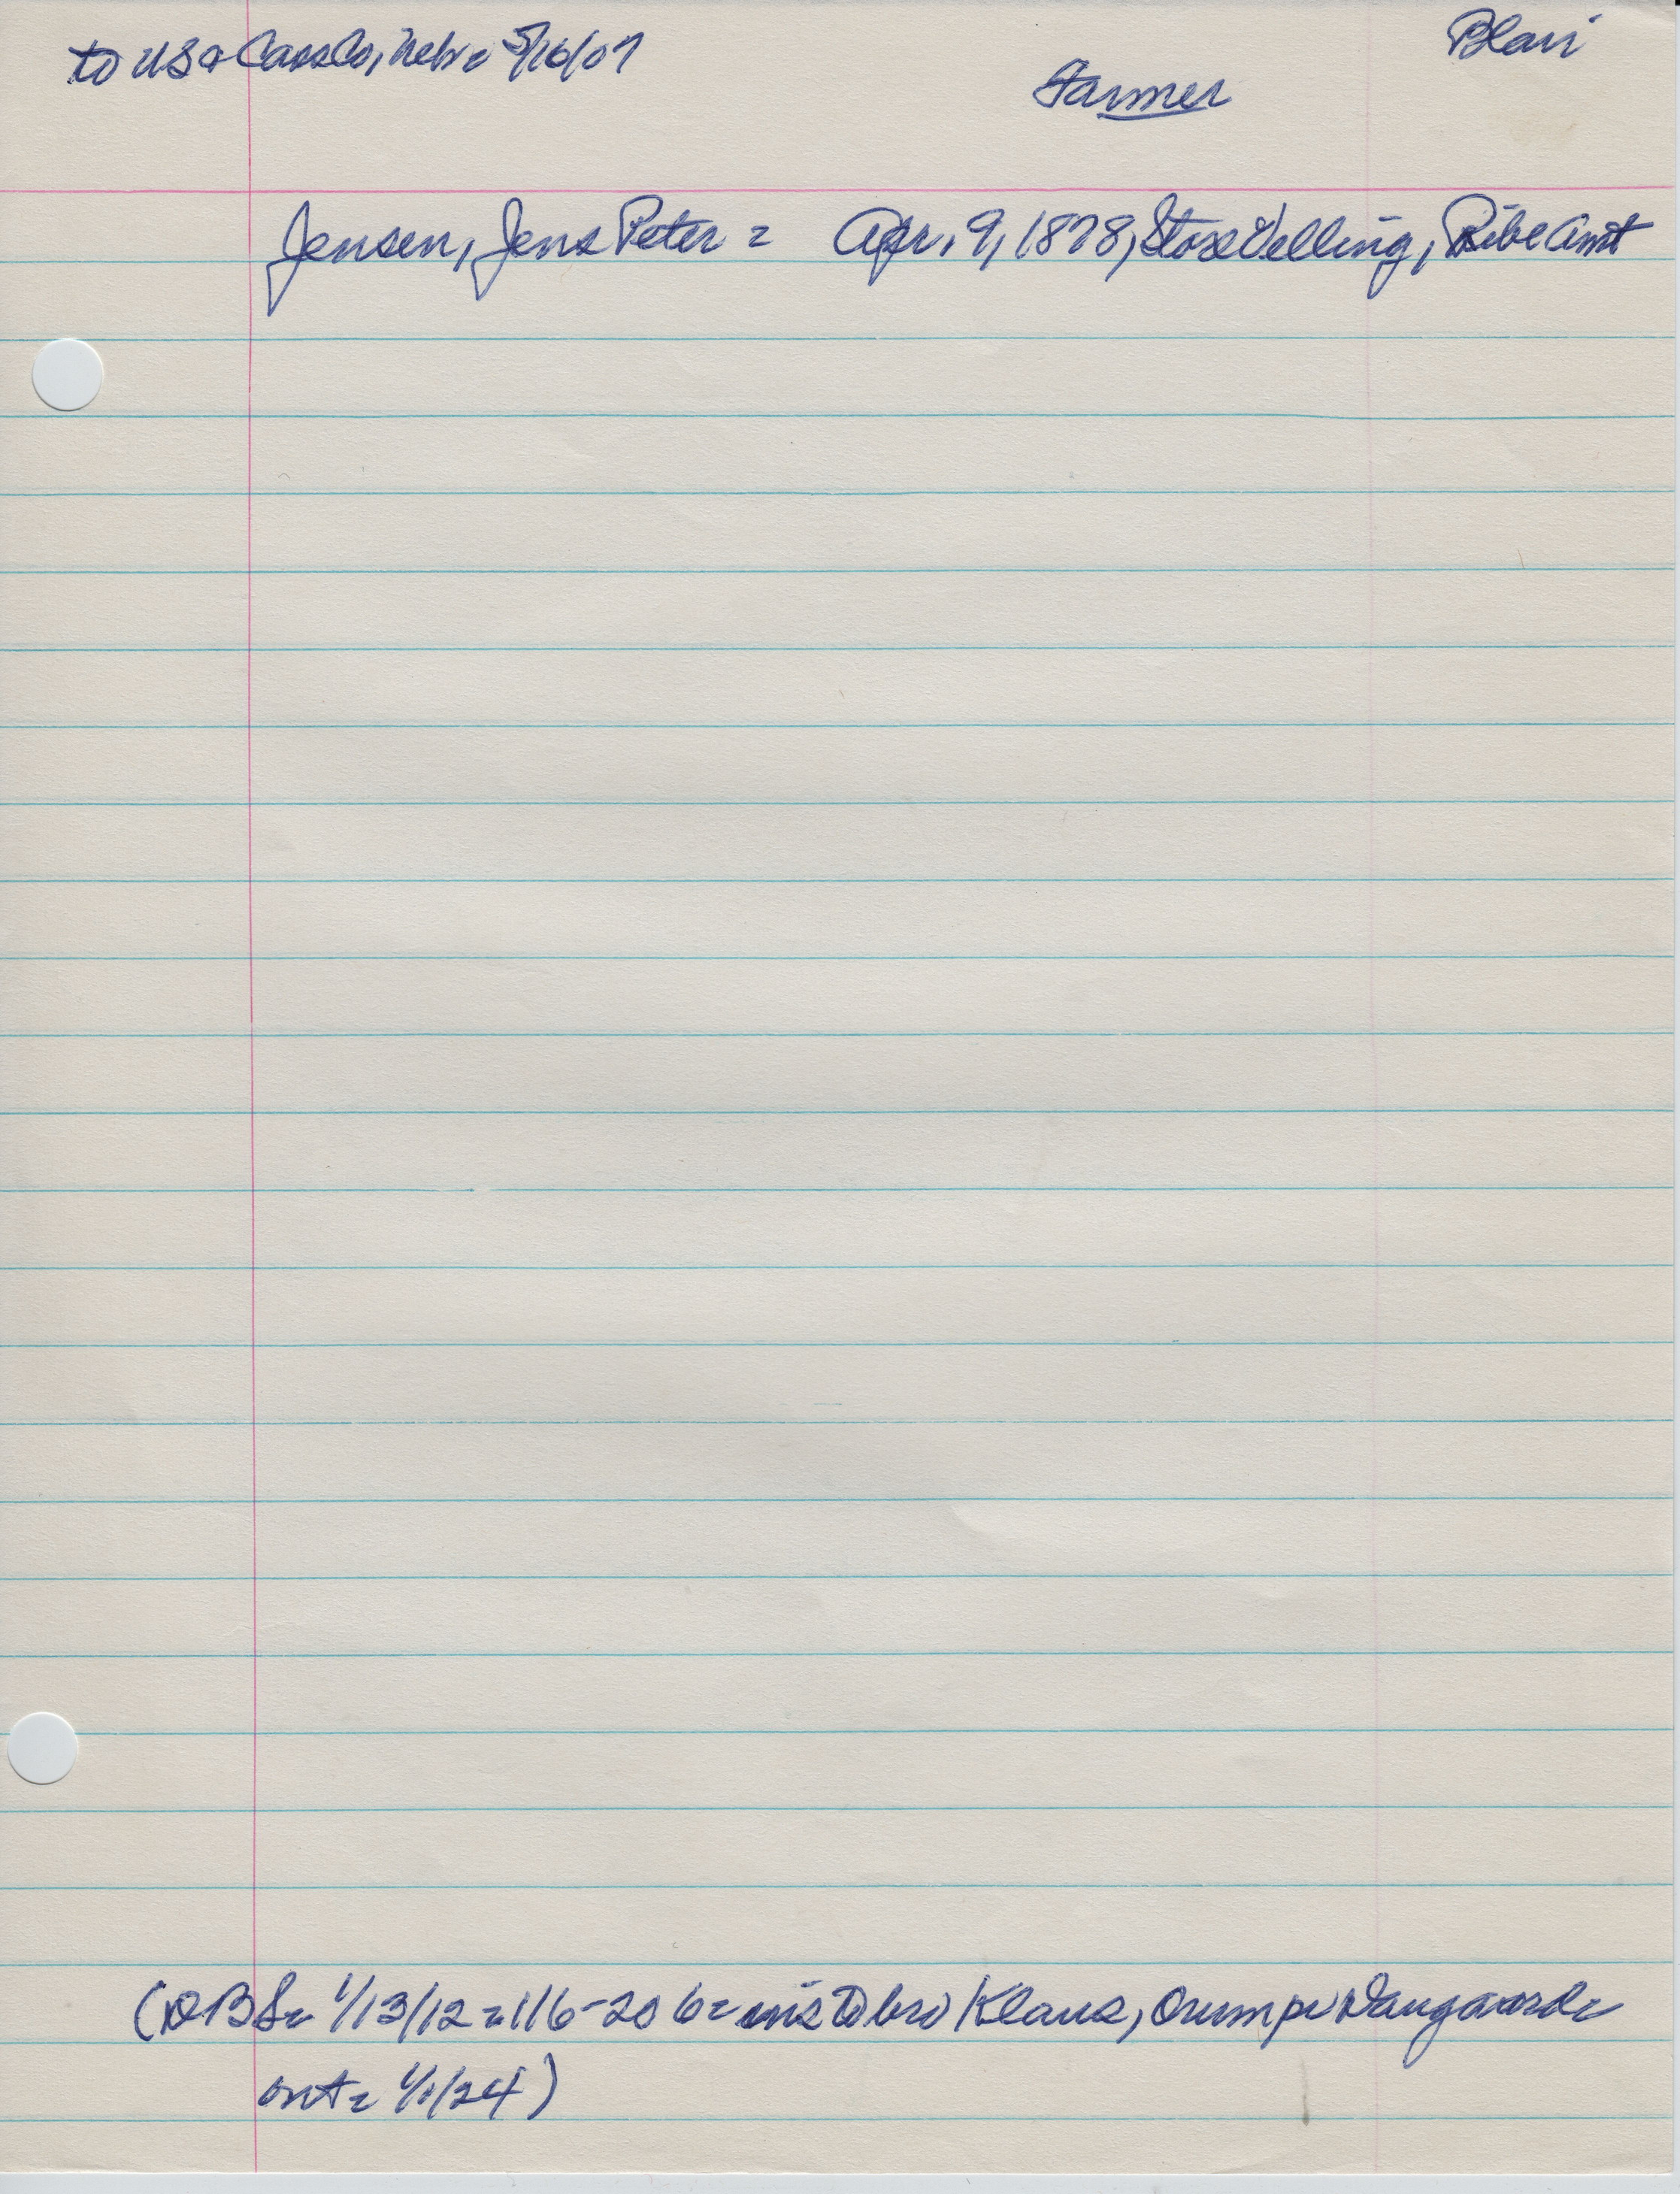 to USA Cass Co, Neb = 5/16/07
Blair
Farmer
Jensen, Jens Peter = Apr. 9, 1878, Store Velling, Ribe Amt
(DBS = 1/13/12 = 116-20 6 = to bro Klaus,
ont = 1/1/24)